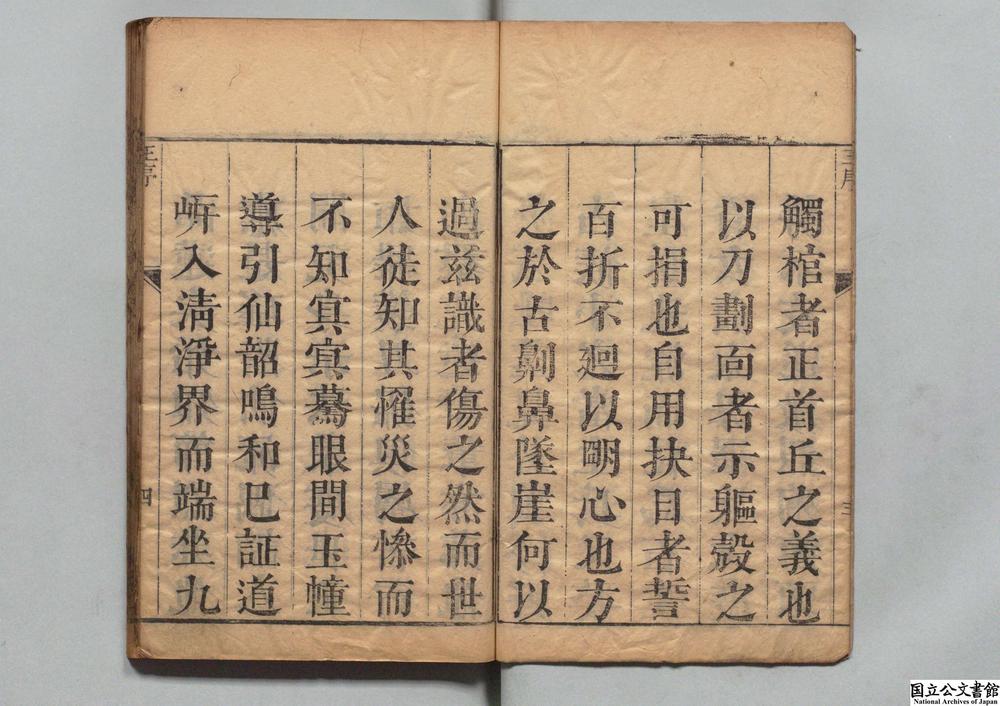 觸棺者正首丘之義也
以刀劃面者示軀殼之
可捐也自用抉目者誓
百折不廻以明心也方
之於古劓鼻墜崖何以
過兹識者傷之然而世
人徒知其罹災之慘而
不知寘寘驀眼間玉幢
導引仙韶鳴和已証道
岍入淸淨界而端坐九
王序
四
三
国立公文書館
National Archives of Japan